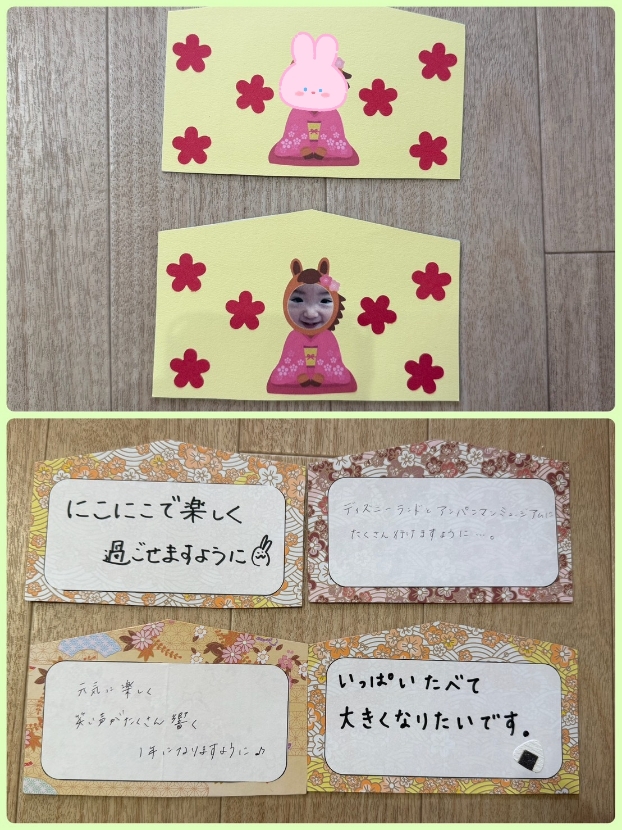 にこにこで楽しく
過ごせますように
ディズニーランドとアンパンマンミュージアムに
たくさん行けますように…。
元気に楽しく
笑い声がたくさん響く
1年になりますように♪
いっぱいたべて
大きくなりたいです。